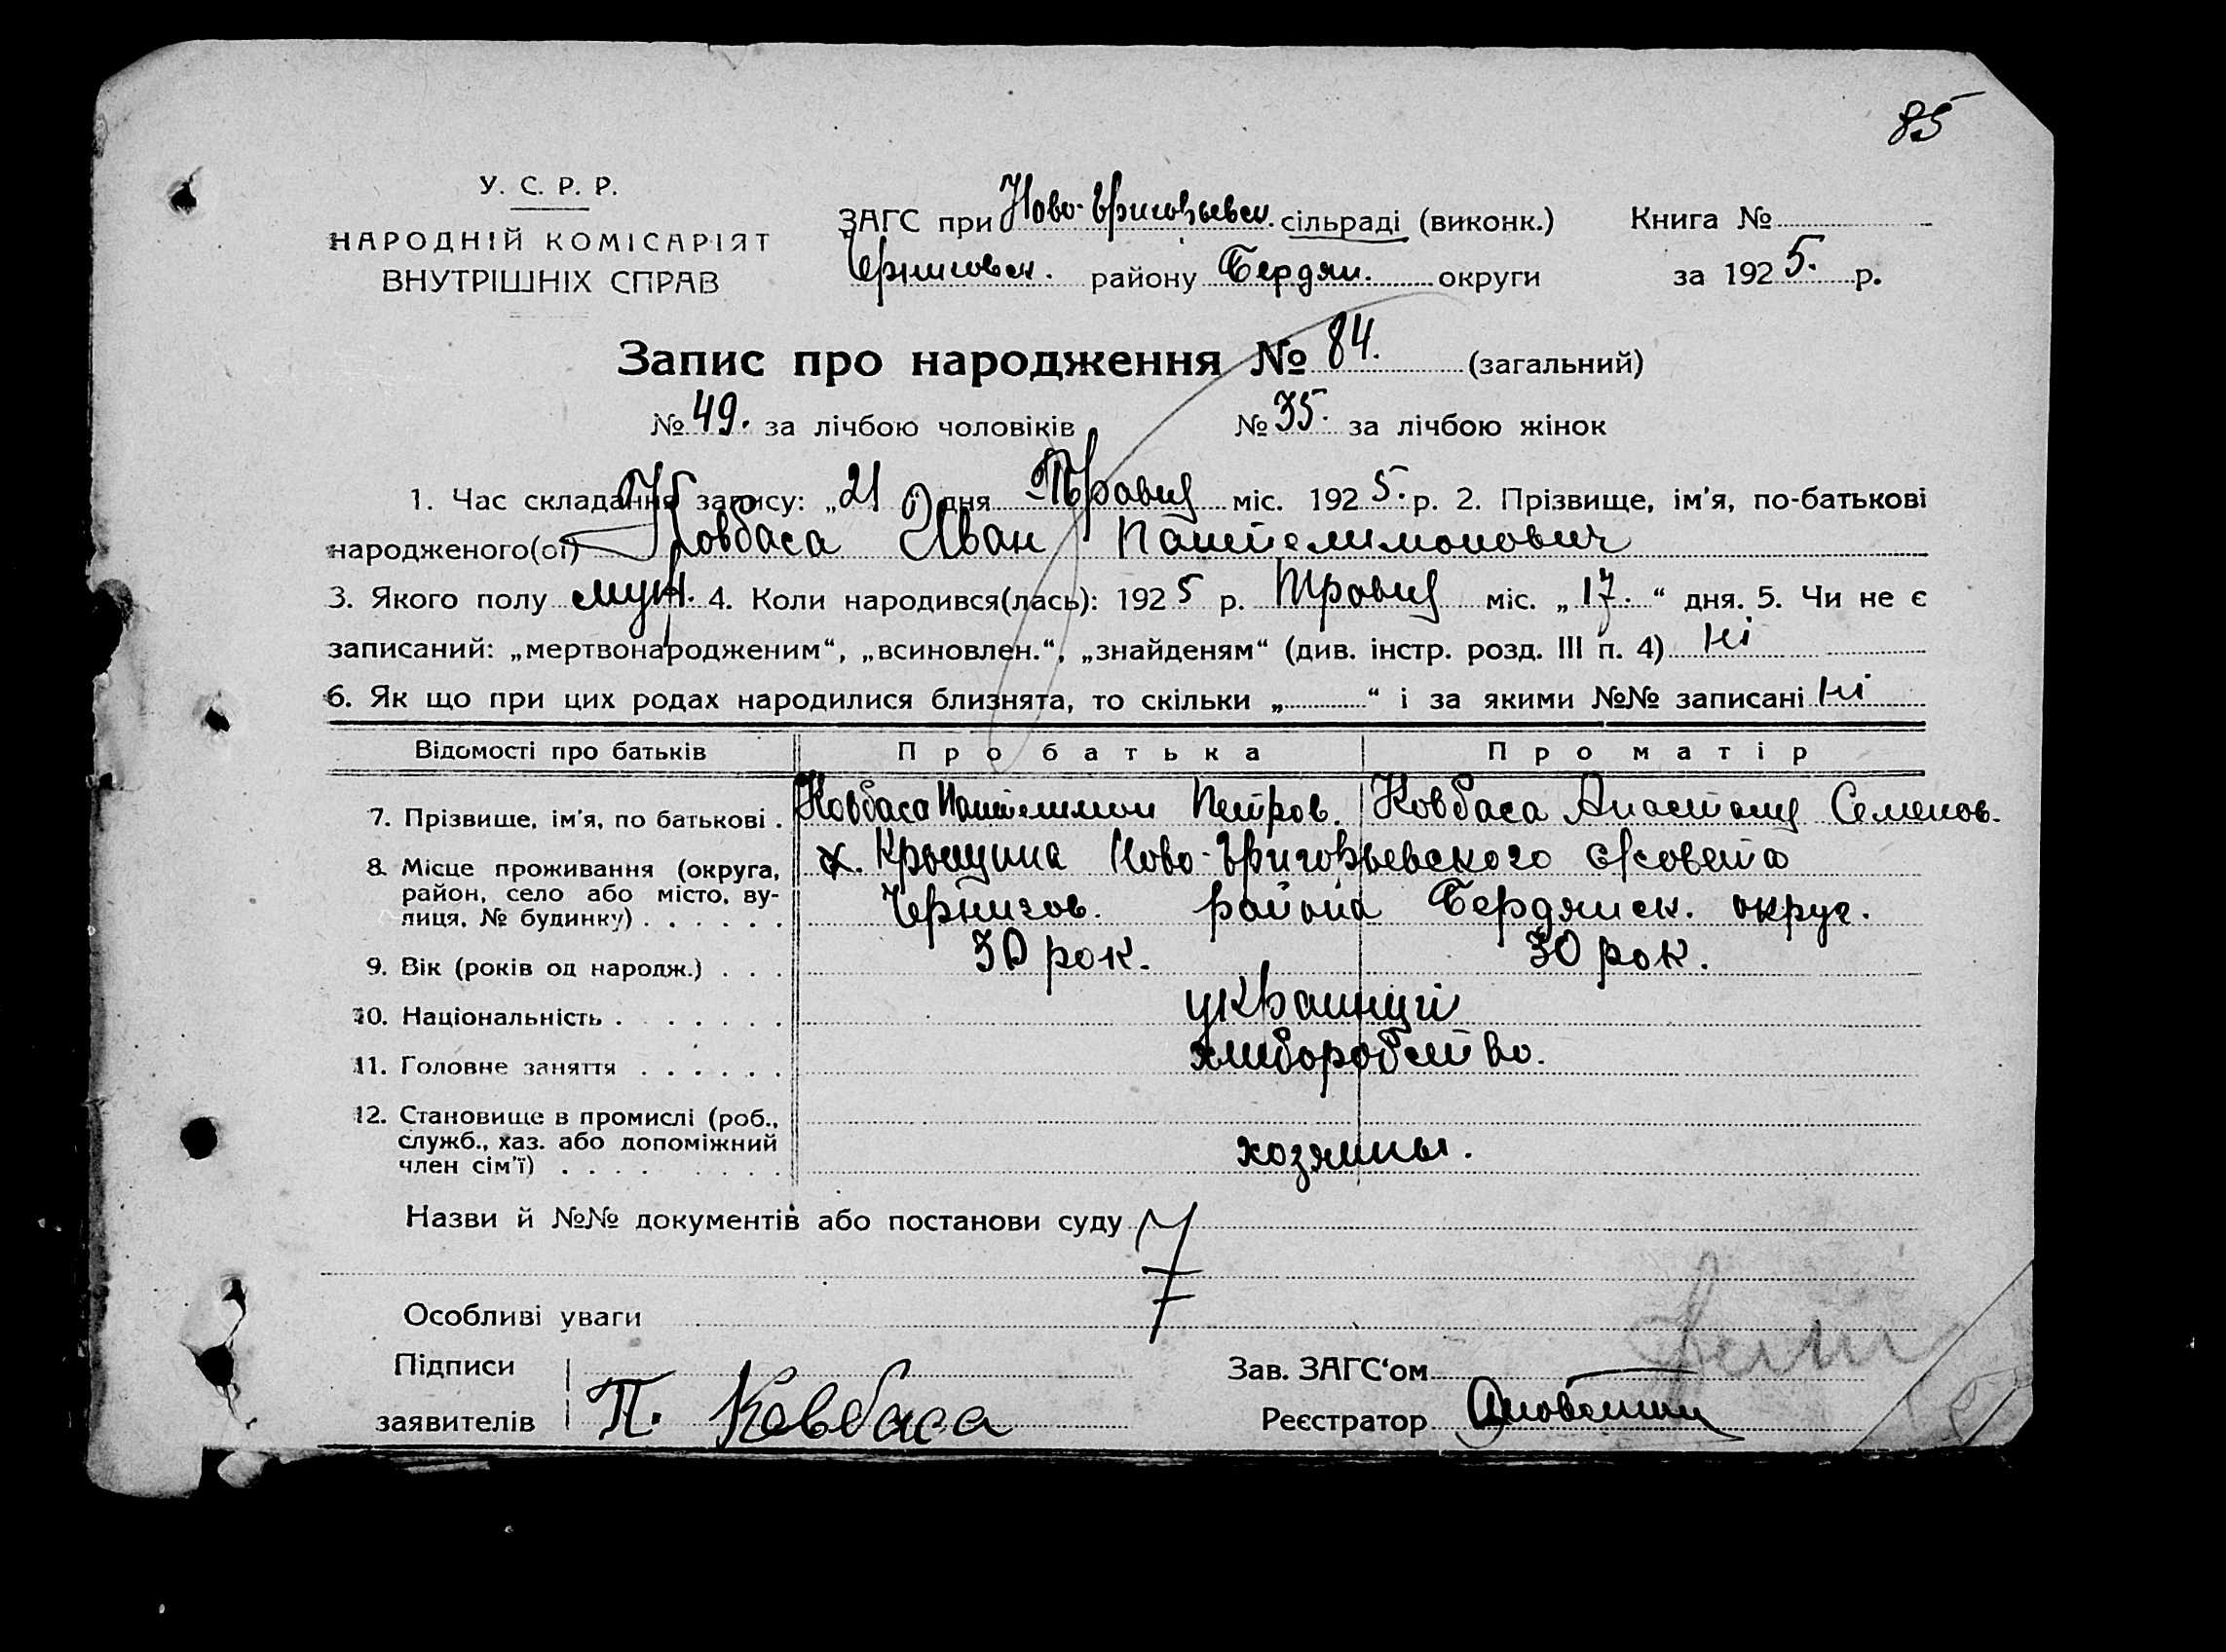 85
У. С. Р. Р.
НАРОДНІЙ КОМІСАРІЯТ
ВНУТРІШНІХ СПРАВ
ЗАГС при Ново-Григорьевск. сільраді (виконк.) Книга №
Черниговск. району Бердян. округи за 1925. р.
Запис про народження № 84. (загальний)
№ 49. за лічбою чоловіків № 35. за лічбою жінок
1. Час складання запису: „21" дня Травня міс. 1925. р. 2. Прізвище, ім'я, по-батькові
народженого(ої) Ковбаса Иван Пантелимонович
3. Якого полу муж. 4. Коли народився(лась): 1925 р. Травня міс. „17." дня. 5. Чи не є
записаний: „мертвонародженим“, „всиновлен.“, „знайденям“ (див. інстр. розд. III п. 4) Ні
6. Як що при цих родах народилися близнята, то скільки „ “ і за якими №№ записані Ні
Відомості про батьків Про батька Про матір
7. Прізвише, ім'я, по батькові . Ковбаса Пантелимон Петров. Ковбаса Анастасия Семенов.
8. Місце проживання (округа, х. Ново-Григорьевского с/совета
район, село або місто, ву-
лиця, № будинку) . . . . . . Чернигов. района Бердянск. округ.
9. Вік (років од народж.) . . . 30 рок. 30 рок.
10. Національність . . . . . . . украинци
11. Головне заняття . . . . . . хлиборобство.
12. Становище в промислі (роб.,
служб., хаз. або допоміжний хозяины.
член сім'ї) . . . . . . . . .
Назви й №№ документів або постанови суду
Особливі уваги
Підписи Зав. ЗАГС‘ом
заявителів П. Ковбаса Реєстратор